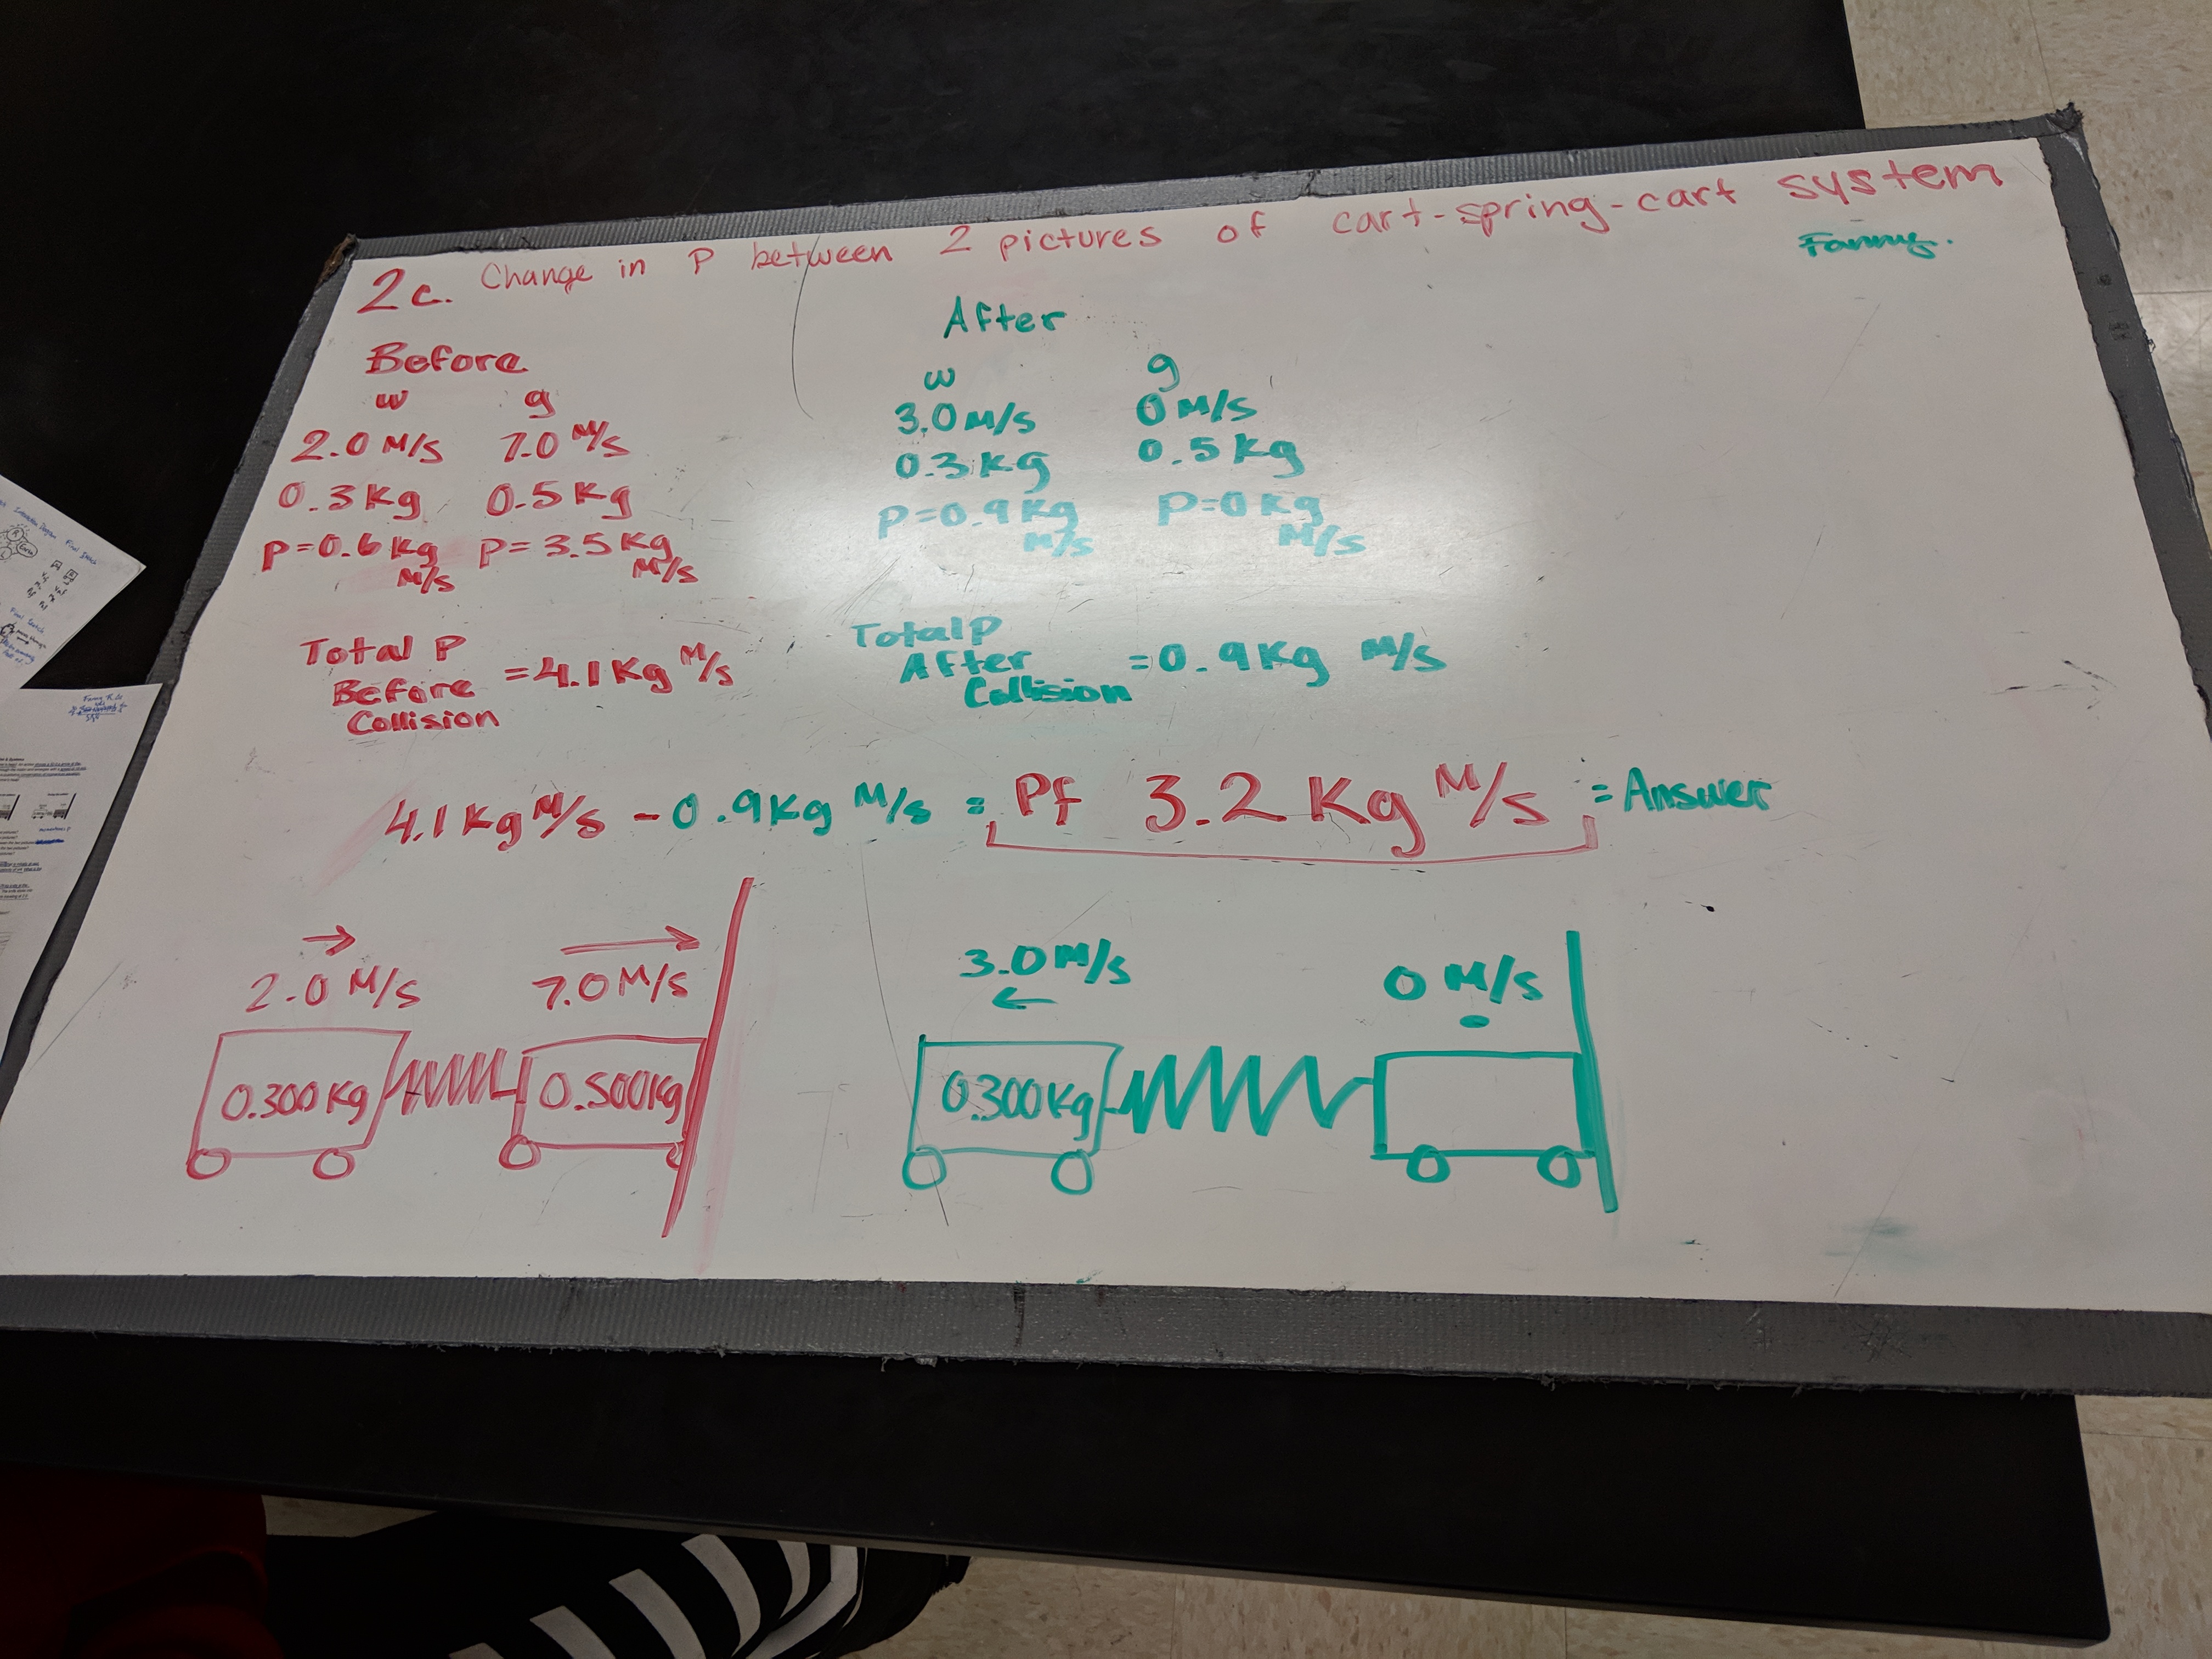 2c. Change in P between 2 pictures of cart-spring-cart system
Fanny.
Before
w g
2.0 M/s 7.0 M/s
0.3 Kg 0.5 Kg
P=0.6 Kg M/s P= 3.5 Kg M/s
Total P Before Collision = 4.1 Kg M/s
After
w g
3.0 M/s 0 M/s
0.3 Kg 0.5 Kg
P=0.9 Kg M/s P=0 Kg M/s
Total P After Collision = 0.9 Kg M/s
4.1 Kg M/s - 0.9 Kg M/s = Pf 3.2 Kg M/s = Answer
2.0 M/s 7.0 M/s
0.300 Kg 0.500 Kg
3.0 M/s 0 M/s
0.300 Kg